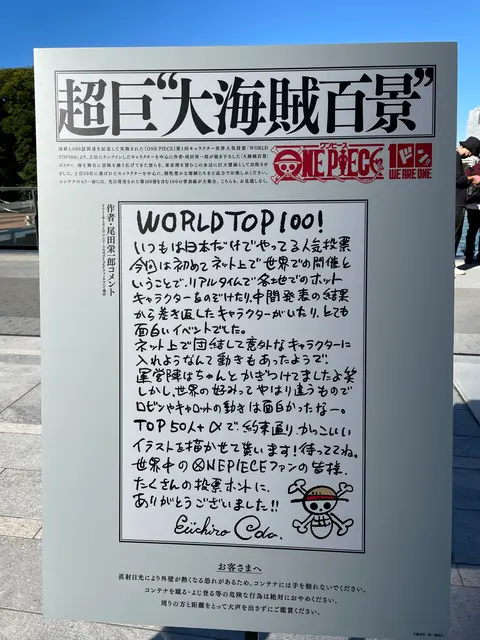 超巨“大海賊百景”
連載1,000話到達を記念して実施された「ONE PIECE」第1回キャラクター世界人気投票「WORLD
TOP100」より、上位にランクインしたキャラクターを中心に作者・尾田栄一郎が描き下ろした「大海賊百景」
ワンピース
ONE PIECE
WE ARE ONE
作者・尾田栄一郎コメント
WORLD TOP 100!
いつもは日本だけでやってる人気投票
今回は初めてネット上で世界での開催と
いうことで、リアルタイムで各地でのホット
キャラクターをのぞけたり、中間発表の結果
から巻き返したキャラクターがいたり、とても
面白いイベントでした。
ネット上で団結して意外なキャラクターに
入れようなんて動きもあったようで、
運営陣はちゃんとかぎつけてましたよ笑
しかし、世界の好みってやはり違うもので
ロビンやキャロットの動きは面白かったなー。
TOP 50人+αで、約束通り、かっこいい
イラストを描かせて貰います!待っててね。
世界中のONEPIECEファンの皆様、
たくさんの投票ホントに、
ありがとうございました!!
Eiichiro Oda.
お客さまへ
直射日光により外壁が熱くなる恐れがあるため、コンテナには手を触れないでください。
コンテナを蹴る・よじ登る等の危険な行為は絶対におやめください。
周りの方と距離をとって大声を出さずにご鑑賞ください。